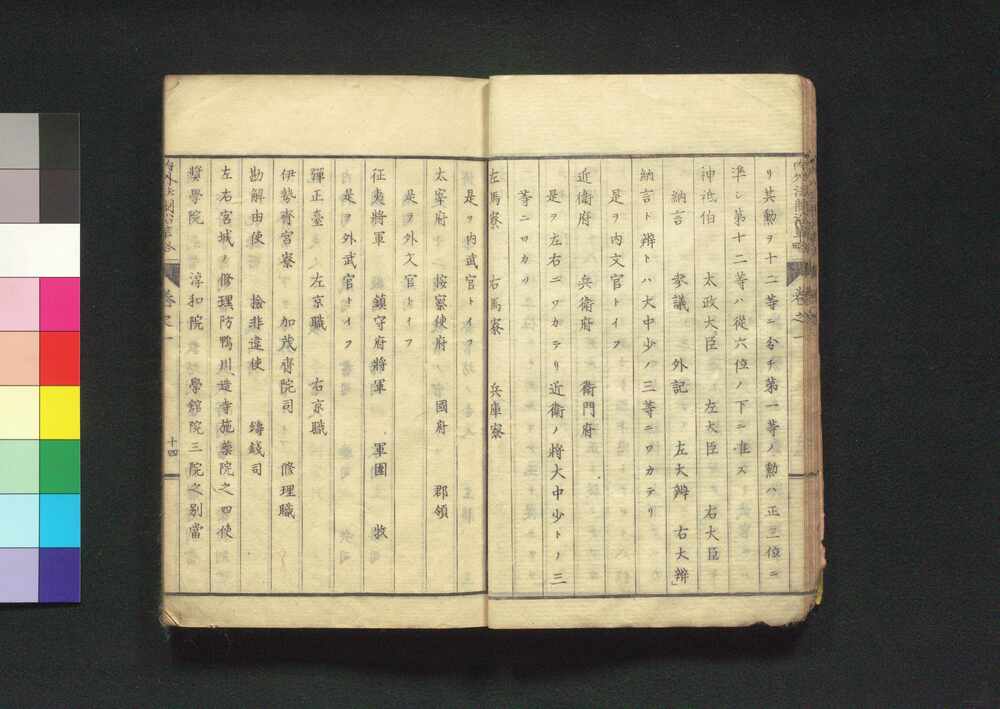 リ其勳ヲ十二等ニ分チ第一等ノ勳ハ正三位ニ
準シ第十二等ハ從六位ノ下ニ准ス
神祗伯　太政大臣　左大臣　右大臣
納言　參議　外記　左大辨　右大辨
納言ト辨トハ大中少ノ三等ニワカテリ
是ヲ内文官トイフ
近衞府　兵衞府　衞門府
是ヲ左右ニワカテリ近衞ノ將大中少トノ三
等ニワカツ
左馬寮　右馬寮　兵庫寮
是ヲ内武官トイフ
太宰府　按察使府　國府　郡領
是ヲ外文官トイフ
征夷將軍　鎮守府將軍　軍團　牧
是ヲ外武官トイフ
彈正臺　左京職　右京職
伊勢齊宮寮　加茂齊院司　修理職
勘解由使　撿非違使　鑄錢司
左右宮城ノ修理防鴨川造寺施藥院之四使
奬學院　淳和院　學館院三院之別當
卷之一
十四